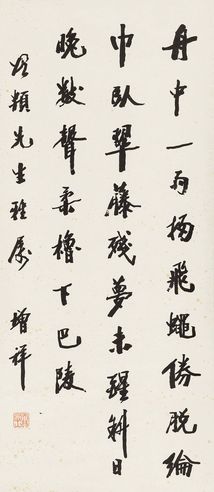 舟中一雨掃飛蠅脫綸
巾臥翠藤殘夢未醒斜日
晚數聲柔櫓下巴陵
先生雅屬 增祥